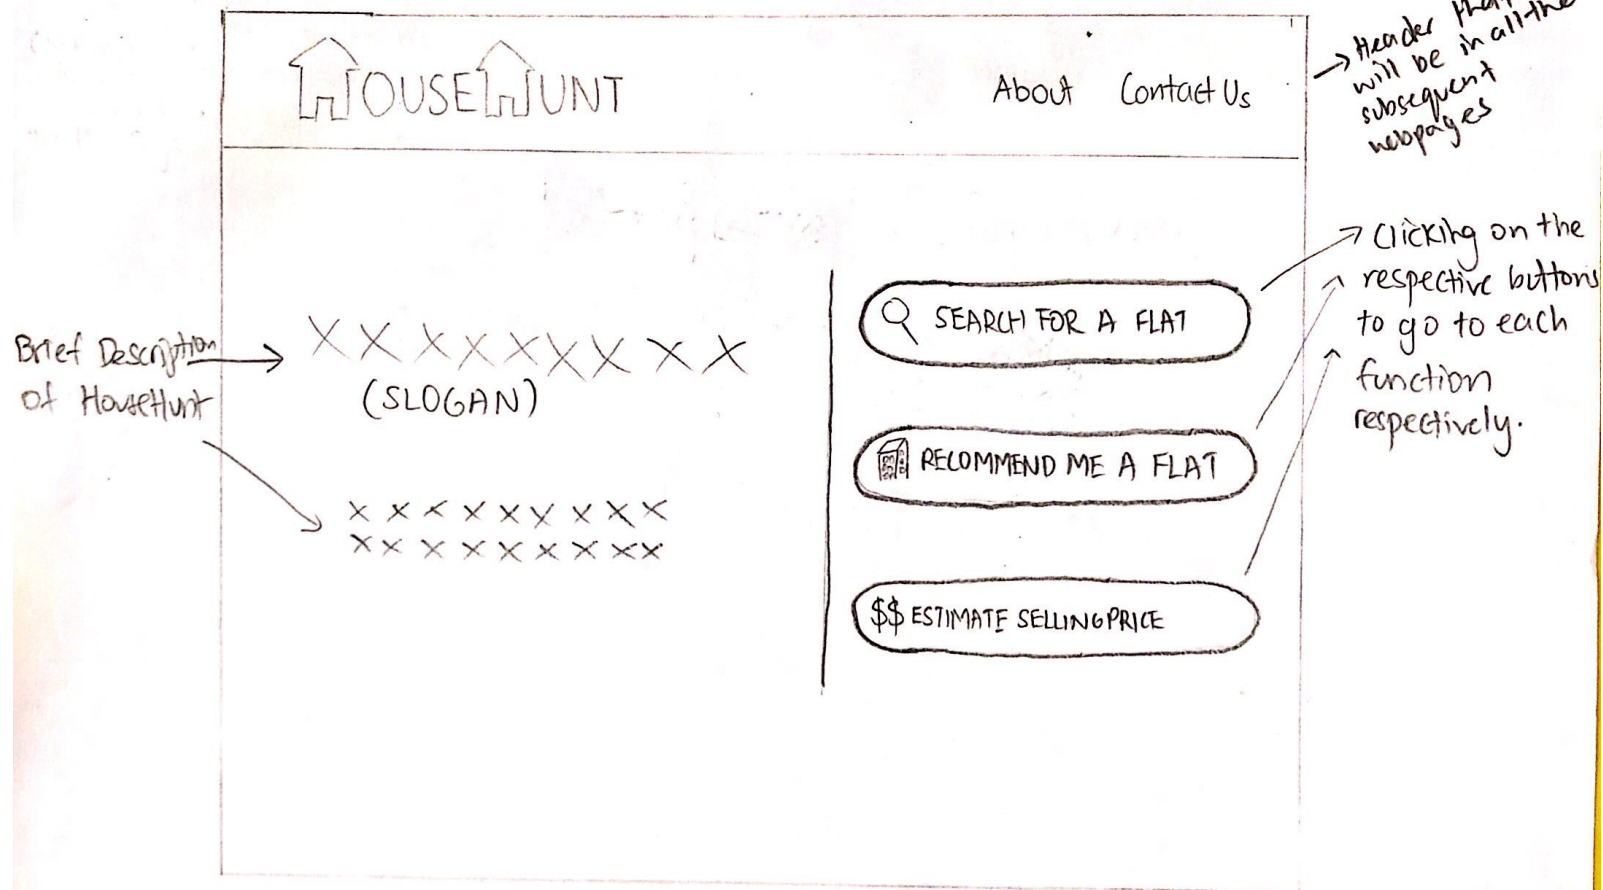 HOUSEHUNT
About Contact Us
Header that
will be in all the
subsequent
webpages
Brief Description
of HouseHunt
X X X X X X X X X
(SLOGAN)
X X X X X X X X X
X X X X X X X X X
SEARCH FOR A FLAT
RECOMMEND ME A FLAT
$$ ESTIMATE SELLING PRICE
Clicking on the
respective buttons
to go to each
function
respectively.